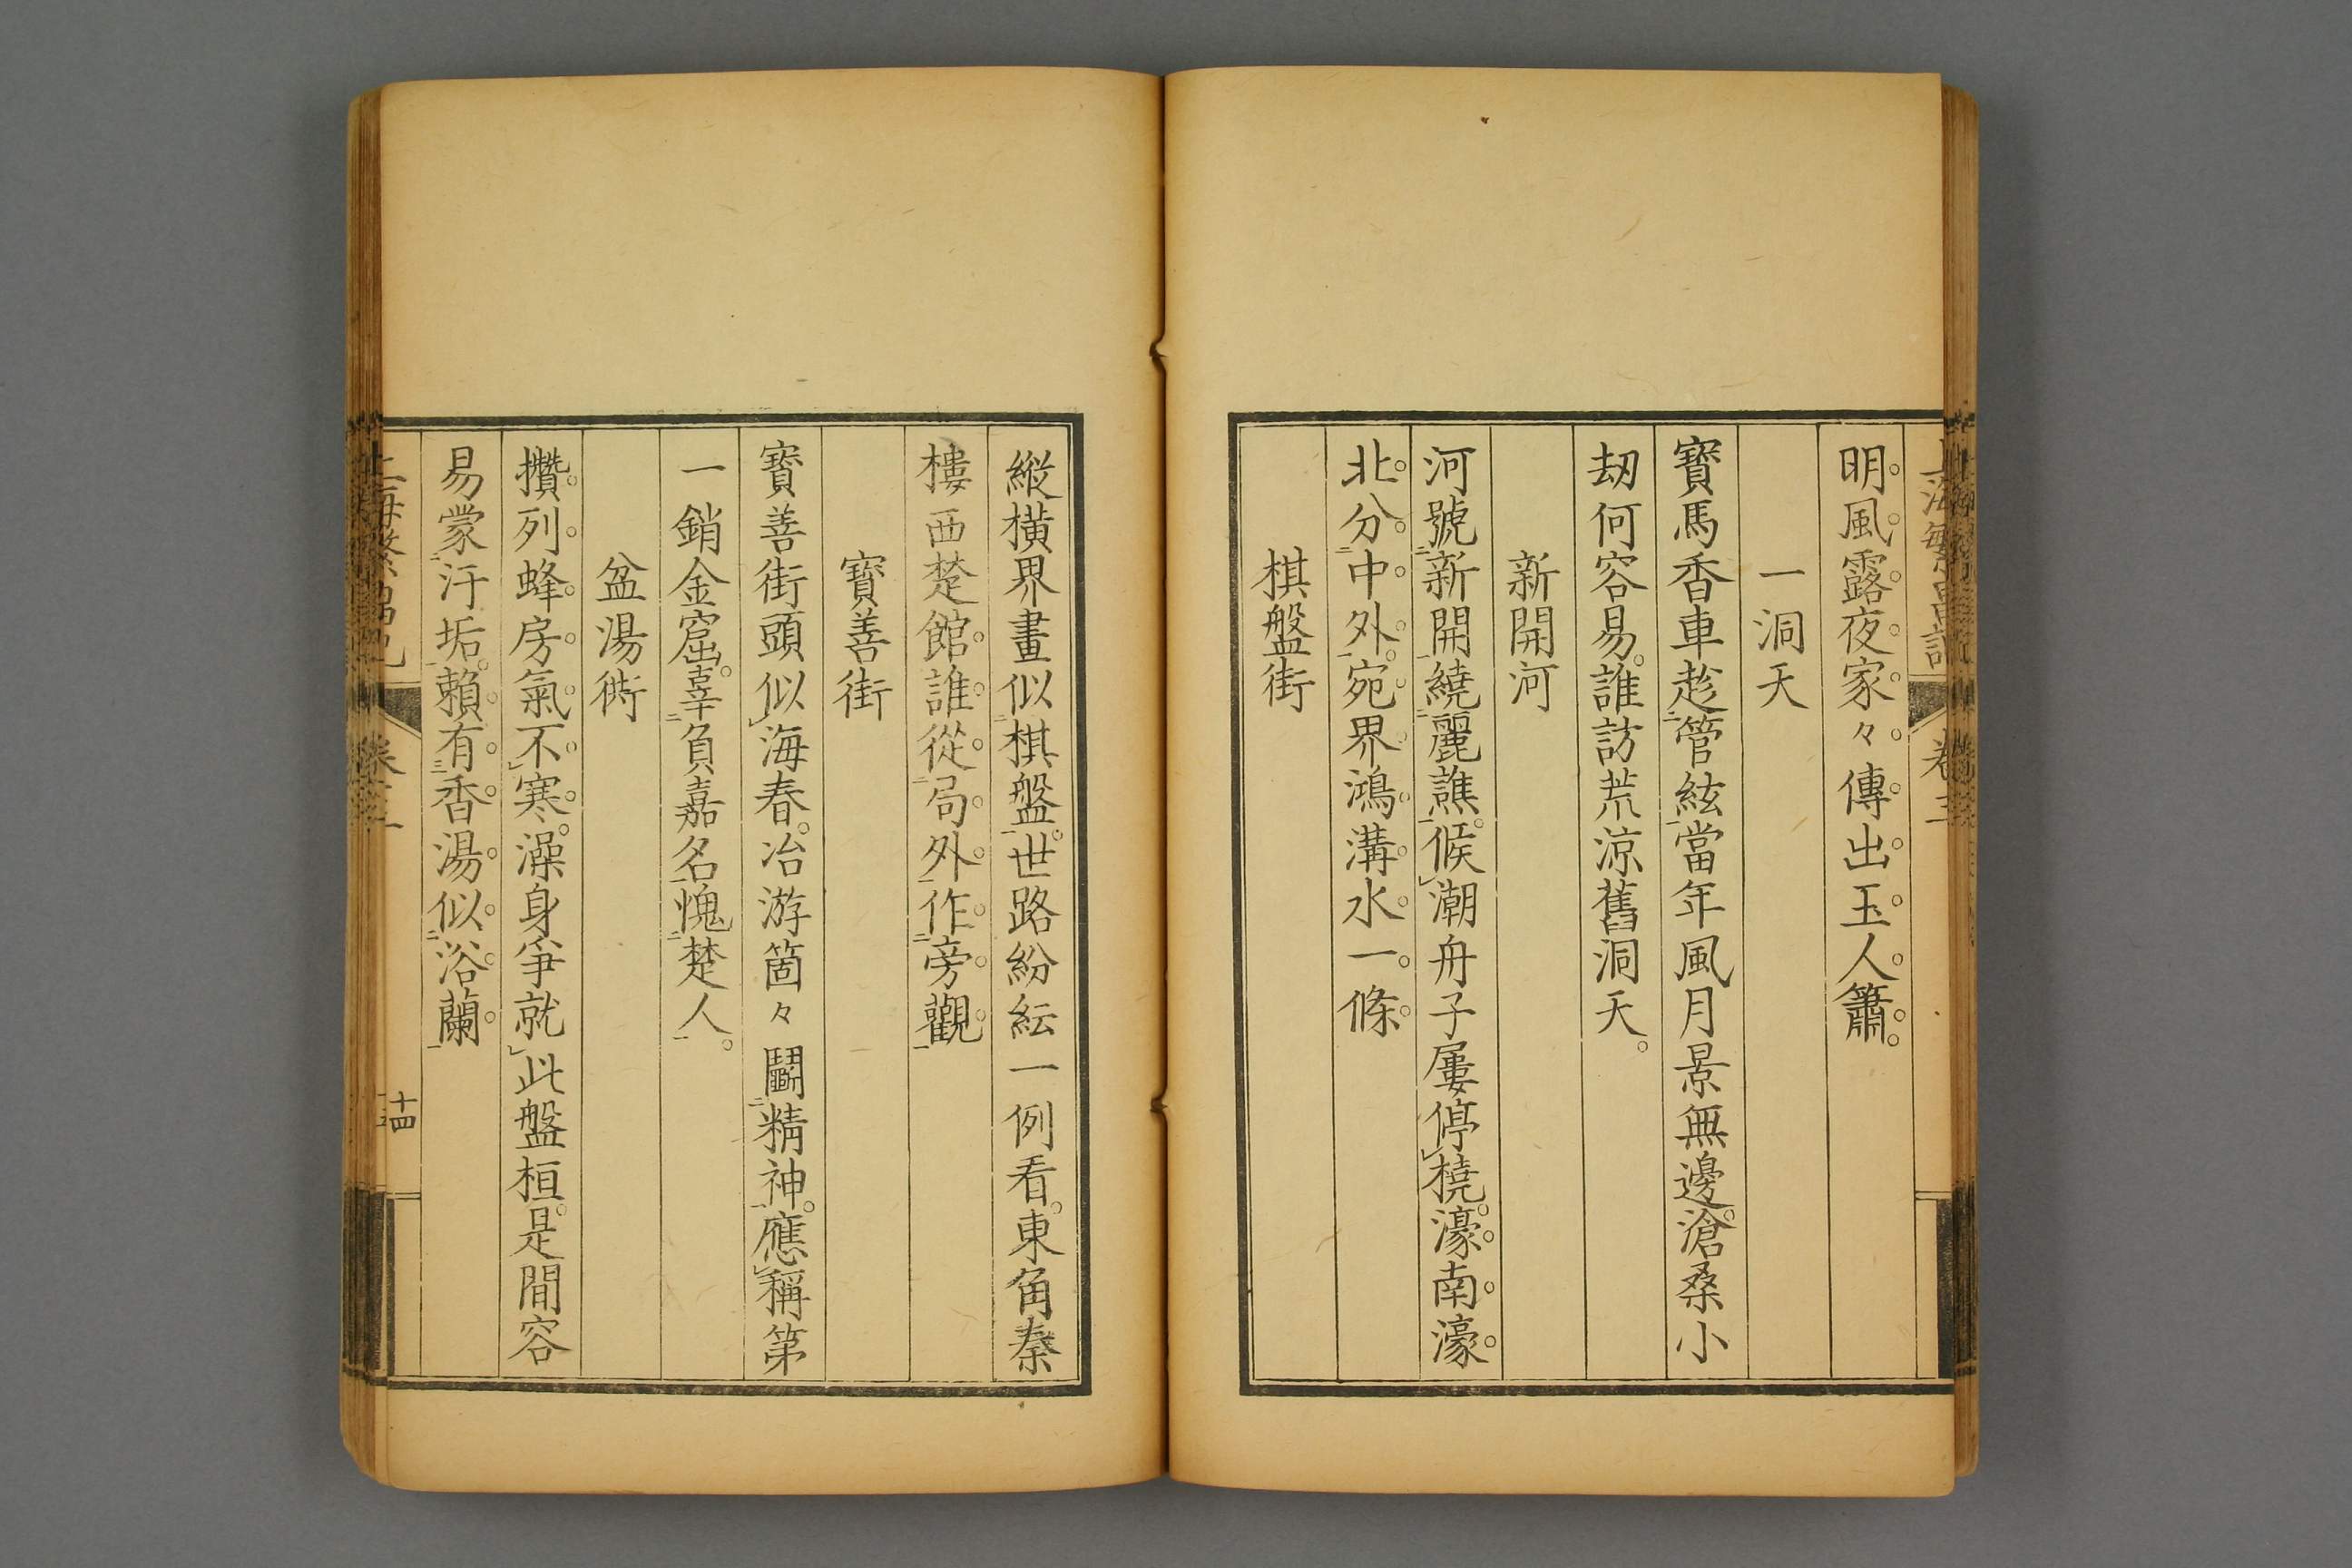 明風露夜家々傳出玉人簫
一洞天
寶馬香車趁管絃當年風月景無邊滄桑小
刼何容易誰訪荒涼舊洞天
新開河
河號新開繞麗譙候潮舟子屢停橈濠南濠
北分中外宛界鴻溝水一條
棋盤街
縱橫界畫似棋盤世路紛紜一例看東角秦
樓西楚館誰從局外作旁觀
寶善街
寶善街頭似海春冶游箇々鬭精神應稱第
一銷金窟辜負嘉名愧楚人
盆湯衖
攢列蜂房氣不寒澡身爭就此盤桓是間容
易蒙汙垢賴有香湯似浴蘭
上海繁昌記
卷三
十四